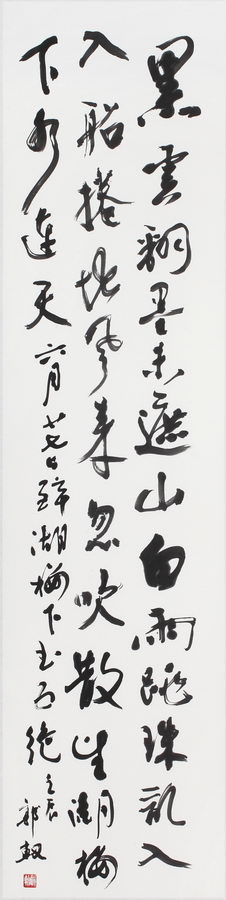 黑雲翻墨未遮山白雨跳珠乱入
入船捲地風来忽吹散望湖樓
下水連天六月廿七日醉湖樓下書五絶壬辰郭